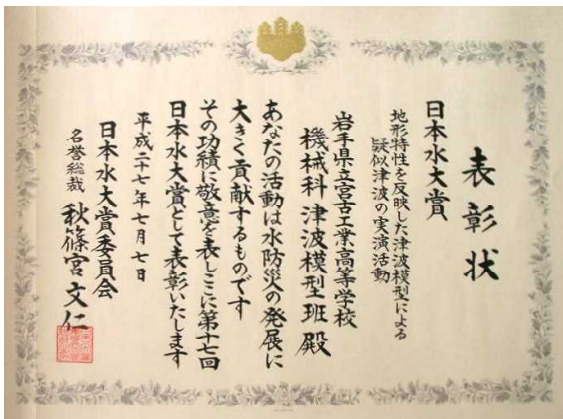 表彰状
日本水大賞
地形特性を反映した津波模型による
疑似津波の実演活動
岩手県立宮古工業高等学校
機械科 津波模型班 殿
あなたの活動は水防災の発展に
大きく貢献するものです
その功績に敬意を表しここに第十七回
日本水大賞として表彰いたします
平成二十七年七月七日
日本水大賞委員会
名誉総裁 秋篠宮文仁